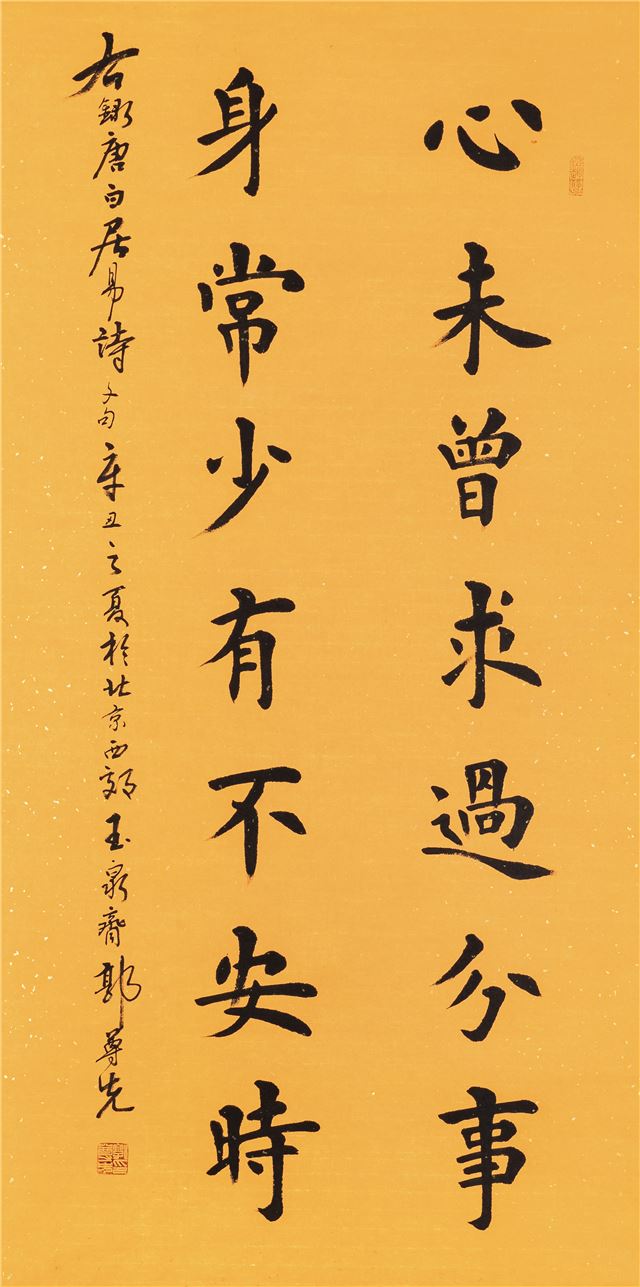 心未曾求過分事
身常少有不安時
右錄唐白居易詩文句辛丑之夏於北京西郊玉泉齋郭尊先